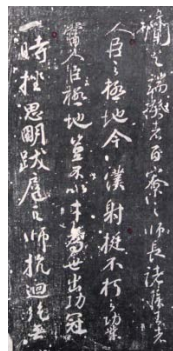 聞之端揆者百寮之師長諸侯王者
人臣之極地今僕射挺不朽之功業
當人臣極地豈不以才為世出功冠
一時挫思明跋扈之師抗迴紇無